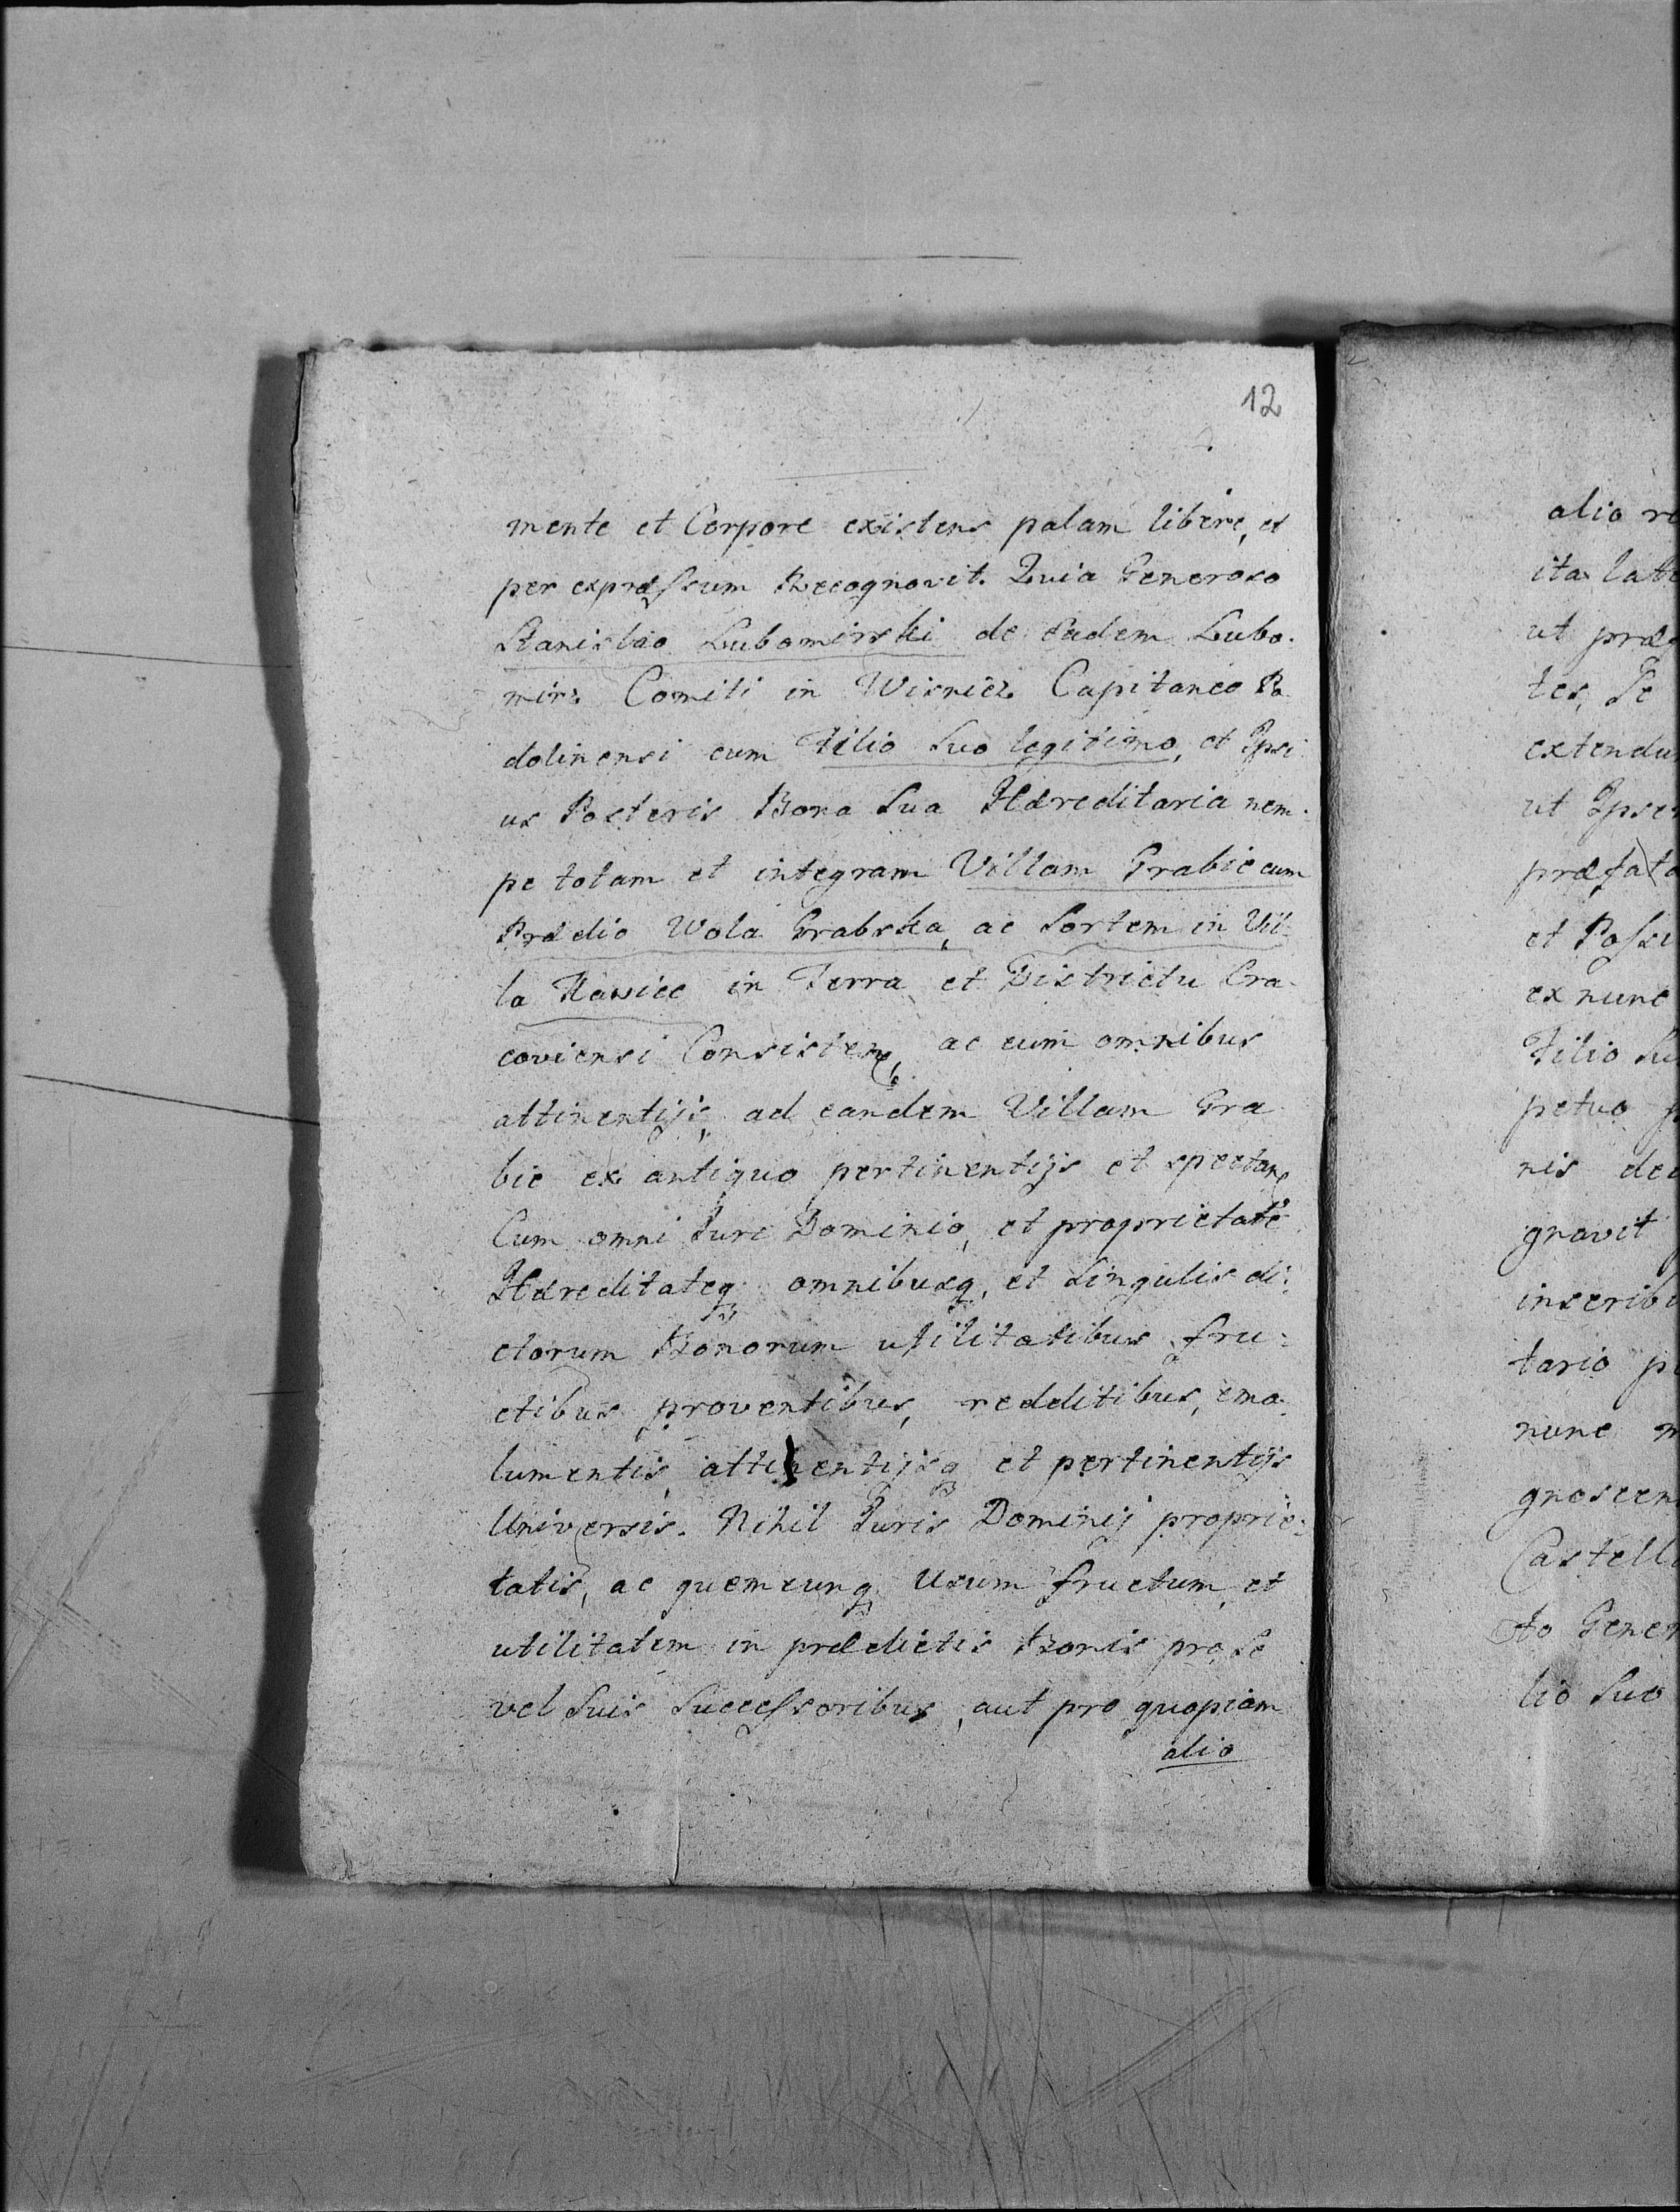 12
mente et Corpore existens palam libere, et
per expræssum Recognovit. Quia Generoso
Stanislao Lubomirski de eadem Lubo-
mirz Comiti in Wisnicz Capitaneo Po
dolinensi cum Filio Suo legitimo, et Ipsi
us Posteris Bona Sua Hæreditaria nem-
pe totam et integram Villam Grabie cum
Prædio Wola Grabska, ac Sortem in Vil-
la Rawiec in Terra et Districtu Cra-
coviensi Consisten, ac cum omnibus
attinentijs, ad eandem Villam Gra
bie ex antiquo pertinentijs et spectan
Cum omni Jure Dominio, et proprietate
Hæreditateq omnibusq, et Singulis di:
ctorum Bonorum utilitatibus fru:
ctibus proventibus, redditibus, emo-
lumentis, attinentijsq et pertinentijs
Universis. Nihil Juris Dominij proprie:
tatis, ac quemcunq Usum fructum, et
utilitatem in prædictis Bonis pro Se
vel Suis Successoribus, aut pro quopiam
alio
alio re
ita lat
ut præ
tes, Se
extendu
ut Ipse
præfato
et Possi
ex nunc
Filio Su
petuo p
nis dec
gnovit
inscribi
tario p
nunc
gnoscen
Castell
to Gener
lio Suo